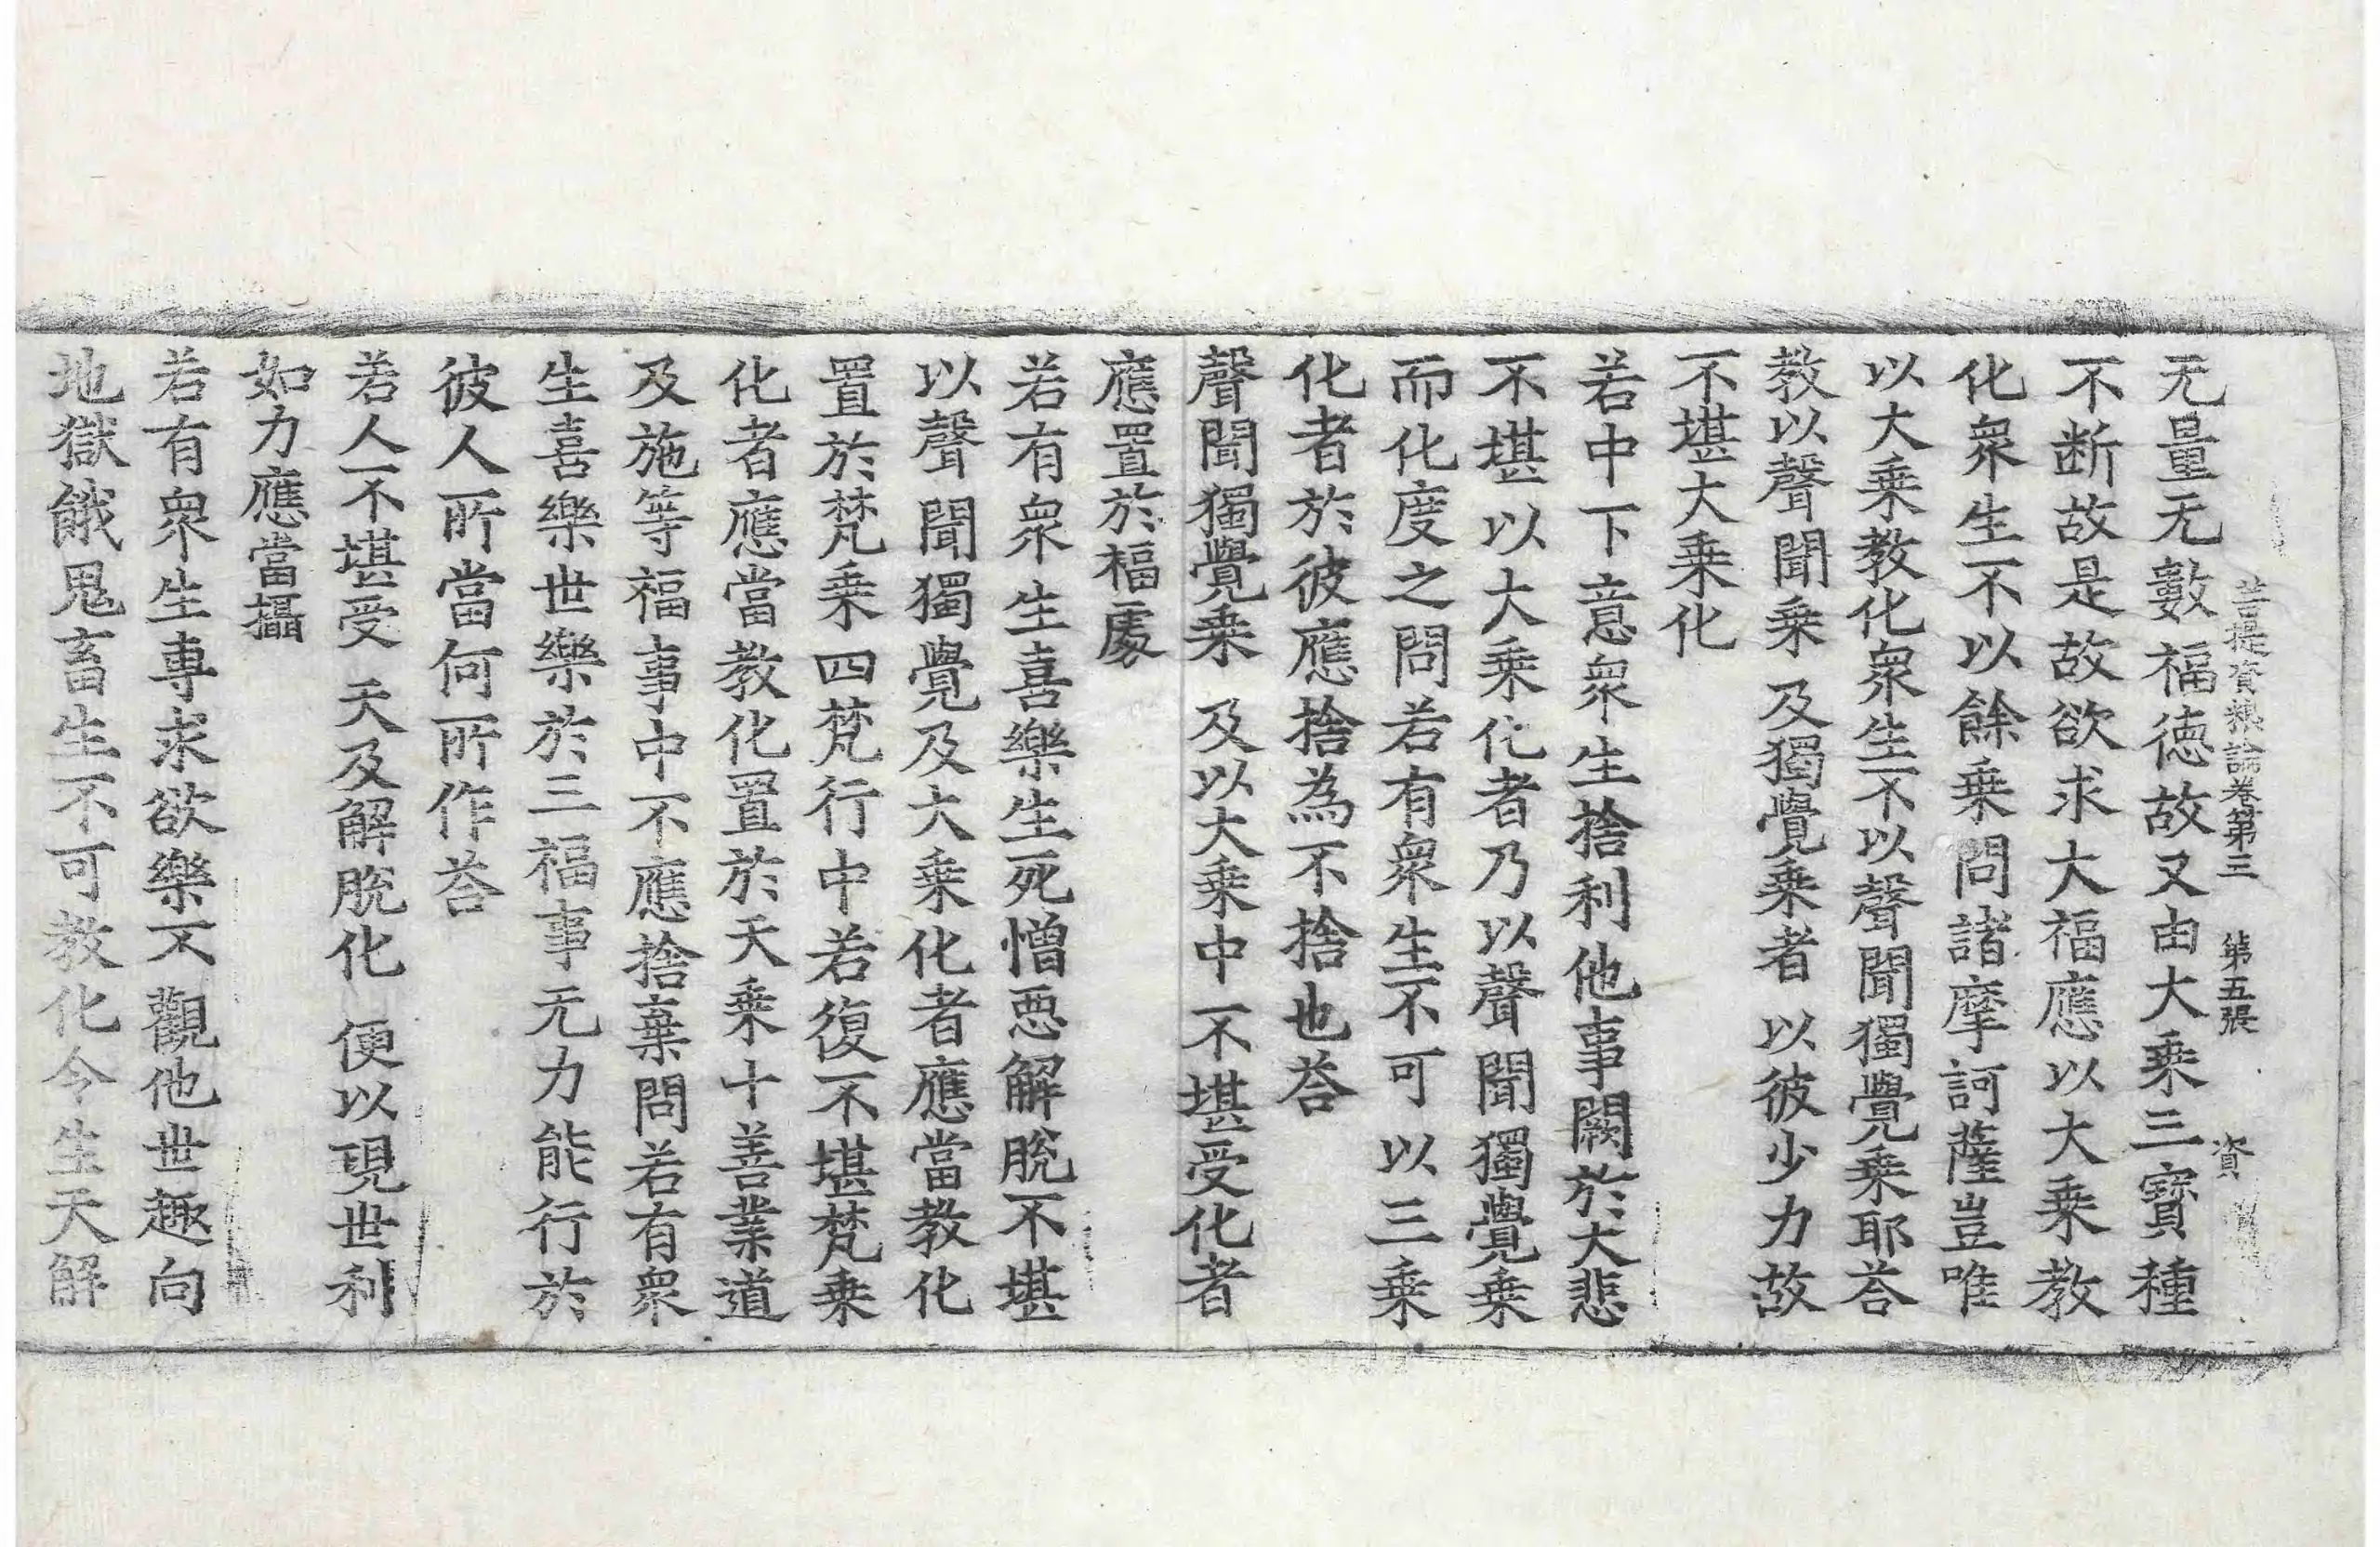 菩提資粮論卷第三 第五張 資
无量无數福徳故又由大乗三寶種
不断故是故欲求大福應以大乗教
化衆生不以餘乗問諸摩訶薩豈唯
以大乗教化衆生不以聲聞獨覺乗耶荅
教以聲聞乗 及獨覺乗者 以彼少力故
不堪大乗化
若中下意衆生捨利他事闕於大悲
不堪以大乗化者乃以聲聞獨覺乗
而化度之問若有衆生不可以三乗
化者於彼應捨為不捨也荅
聲聞獨覺乗 及以大乗中 不堪受化者
應置於福處
若有衆生喜樂生死憎惡解脫不堪
以聲聞獨覺及大乗化者應當教化
置於梵乗四梵行中若復不堪梵乗
化者應當教化置於天乗十善業道
及施等福事中不應捨棄問若有衆
生喜樂世樂於三福事无力能行於
彼人所當何所作荅
若人不堪受 天及解脫化 便以現世利
如力應當攝
若有衆生専求欲樂不觀他世趣向
地獄餓鬼畜生不可教化令生天解